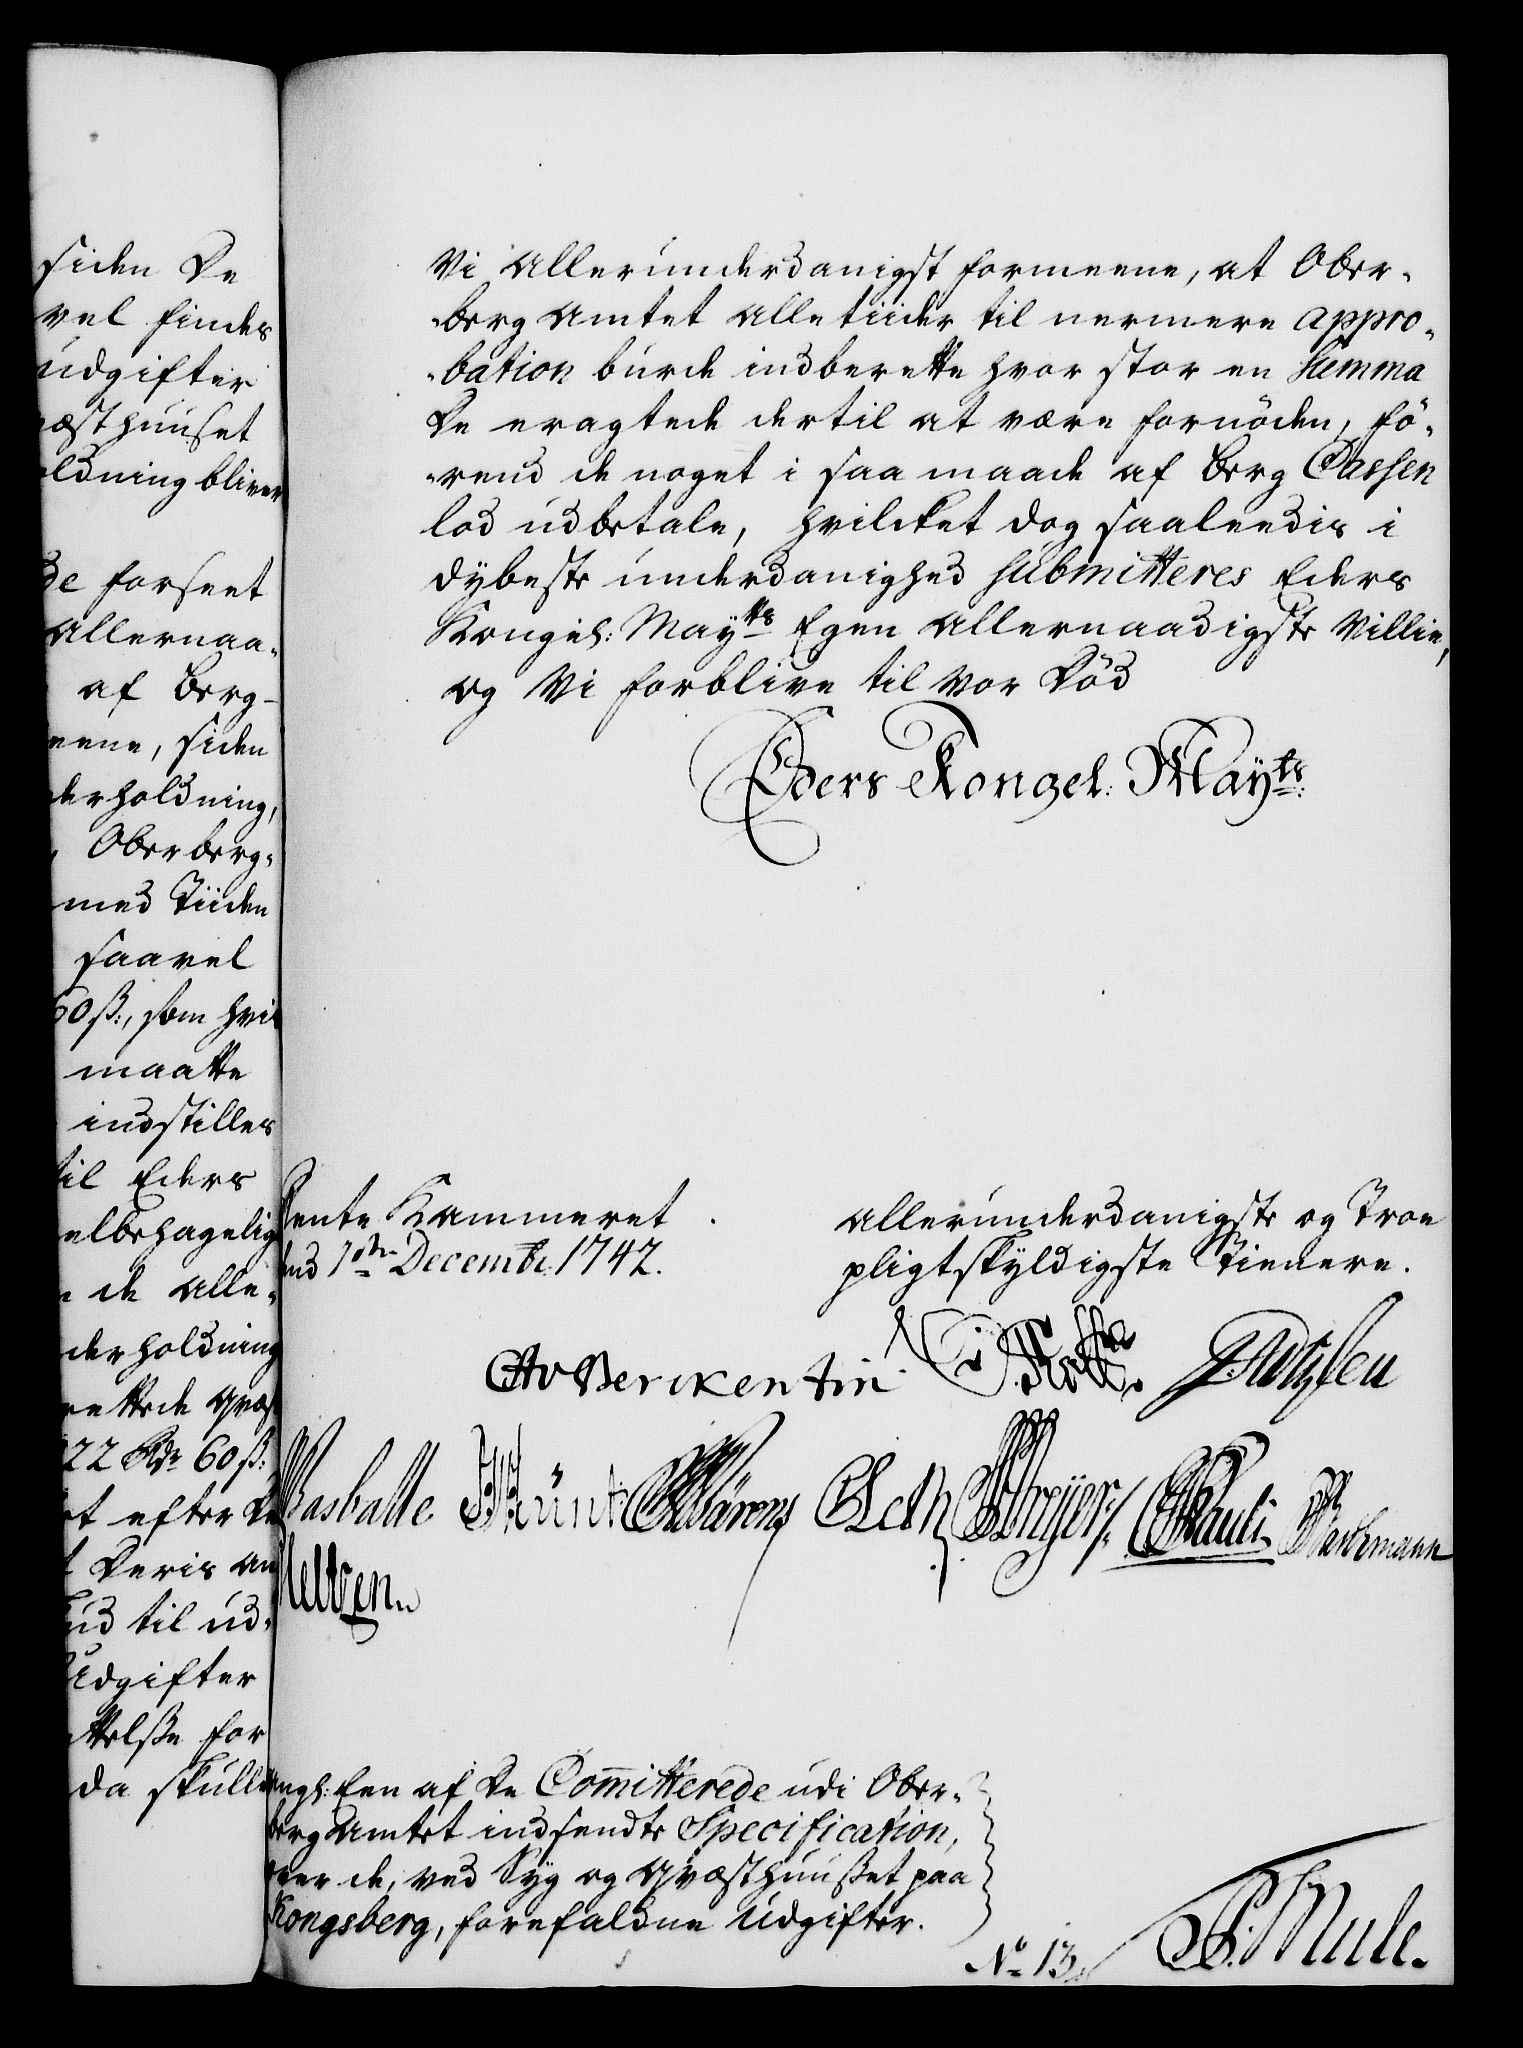 siden De
vel findes
udgifter
æsthuuset
ldning bliver
de forseet
allernaa-
af Berg-
eene, siden
derholdning,
Oberberg-
med Tiiden
saavel
60 ß:, som hvis
maatte
indstilles
til Eders
elbehagelig
de alle-
derholdning
rettede qvæst
22 Rdr 60 ß:
et efter De
Deris an
ud til ud-
Udgifter
ttelße for
da skulle
Vi allerunderdanigst formeene, at Ober-
-berg Amtet alle tiider til nermere appro-
-bation burde indberette hvor stor en Summa
De eragtede dertil at være fornöden, fö-
-rend de noget i saa maade af Berg Cassen
lod udbetale, hvilcket dog saaleedis i
dybeste underdanighed submitteres Eders
Kongel: Mayts Egen allernaadigste Villie,
og Vi forblive til vor Död
Eders Kongel: Mayts:
Rente Kammeret
allerunderdanigste og Troe
pligtskyldigste Tienere.
Decembr 1742.
Berckentin
Basballe Münt Wärens Leth Schreÿer Pauli
Eltzen
Een af De Committerede udi Ober-
berg Amtet indsendte Specification,
over de, ved Syg og Qvæsthuußet paa
Kongsberg, forefaldne Udgifter.
No 13.
Mule.